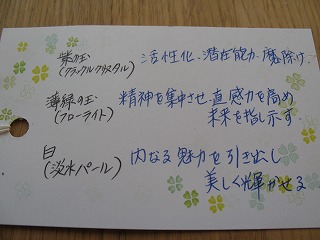 紫の玉 活性化、潜在能力、魔除け。
(クラックルクリスタル)
薄緑の玉 精神を集中させ、直感力を高め
(フローライト) 未来を指し示す。
白 内なる魅力を引き出し
(淡水パール) 美しく輝かせる